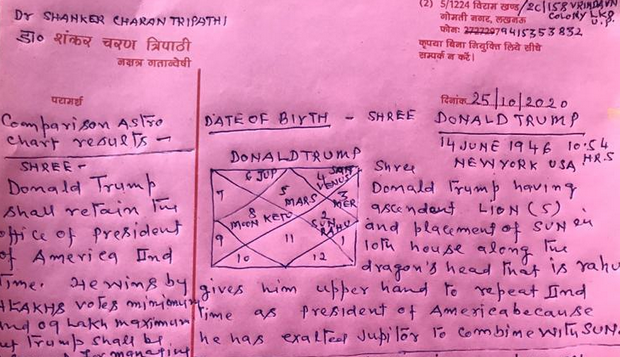 Dr SHANKER CHARAN TRIPATHI
डा० शंकर चरण त्रिपाठी
नक्षत्र गतान्वेषी
(2) 5/1224 विराम खण्ड/2C/158 VRINDAVN
गोमती नगर, लखनऊ COLONY LKO
U.P.
फोनः 2727297 9415353832
कृपया बिना नियुक्ति लिये सीधे
सम्पर्क न करें।
परामर्श
दिनांक 25/10/2020
Comparison Astro
Chart results -
DATE OF BIYTH - SHREE DONALD TRUMP
14 JUNE 1946 10.54
HRS
NEWYORK USA
SHREE -
Donald Trump
shall retain the
office of President
of America IInd
time. He wins by
LAKHS votes minimum
lakh maximum
Trump shall be
DONALD TRUMP
6 JUP
5
MARS
4 SAT
VENUS
3
MER
7
8
MOON KETU
2
SUN
RAHU
9
11
1
10
12
Shree
Donald Trump having
ascendent LION (5)
and placement of SUN in
10th house along the
dragon's head that is rahu
gives him upper hand to repeat IInd
time as President of America because
he has exalted Jupitor to combine with SUN.